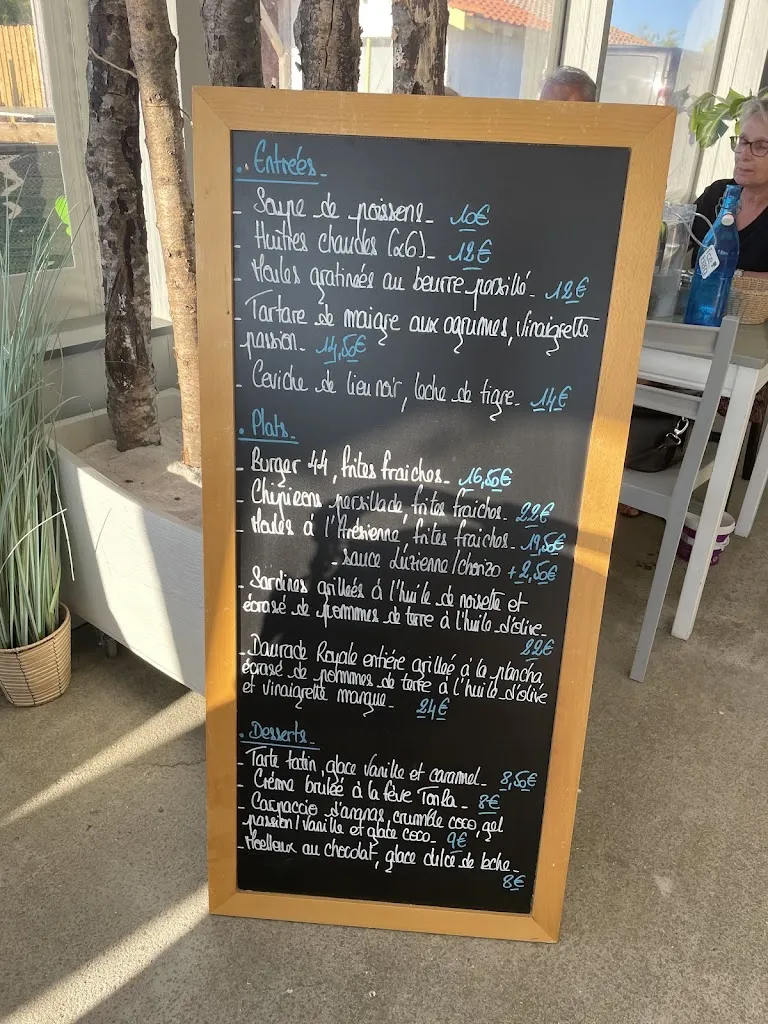 . Entrées_
- Soupe de poissons_ 10€
- Huîtres chaudes (x6)_ 12€
- Moules gratinées au beurre persillé_ 12€
- Tartare de maigre aux agrumes, vinaigrette
passion_ 14,50€
- Ceviche de lieu noir, leche de tigre_ 14€
. Plats_
- Burger 44, frites fraiches_ 16,50€
- Chipirons persillade, frites fraiches_ 22€
- Moules à l'Arésienne, frites fraiches_ 19,50€
- sauce Luzienne/chorizo + 2,50€
- Sardines grillées à l'huile de noisette et
écrasé de pommes de terre à l'huile d'olive_
22€
- Daurade Royale entière grillée à la plancha
écrasé de pommes de terre à l'huile d'olive
et vinaigrette mangue_ 24€
. Desserts_
- Tarte tatin, glace vanille et caramel_ 8,50€
- Crème brulée à la fève Tonka_ 8€
- Carpaccio d'ananas, crumble coco, gel
passion/vanille et glace coco_ 9€
- Moelleux au chocolat, glace dulce de leche_
8€